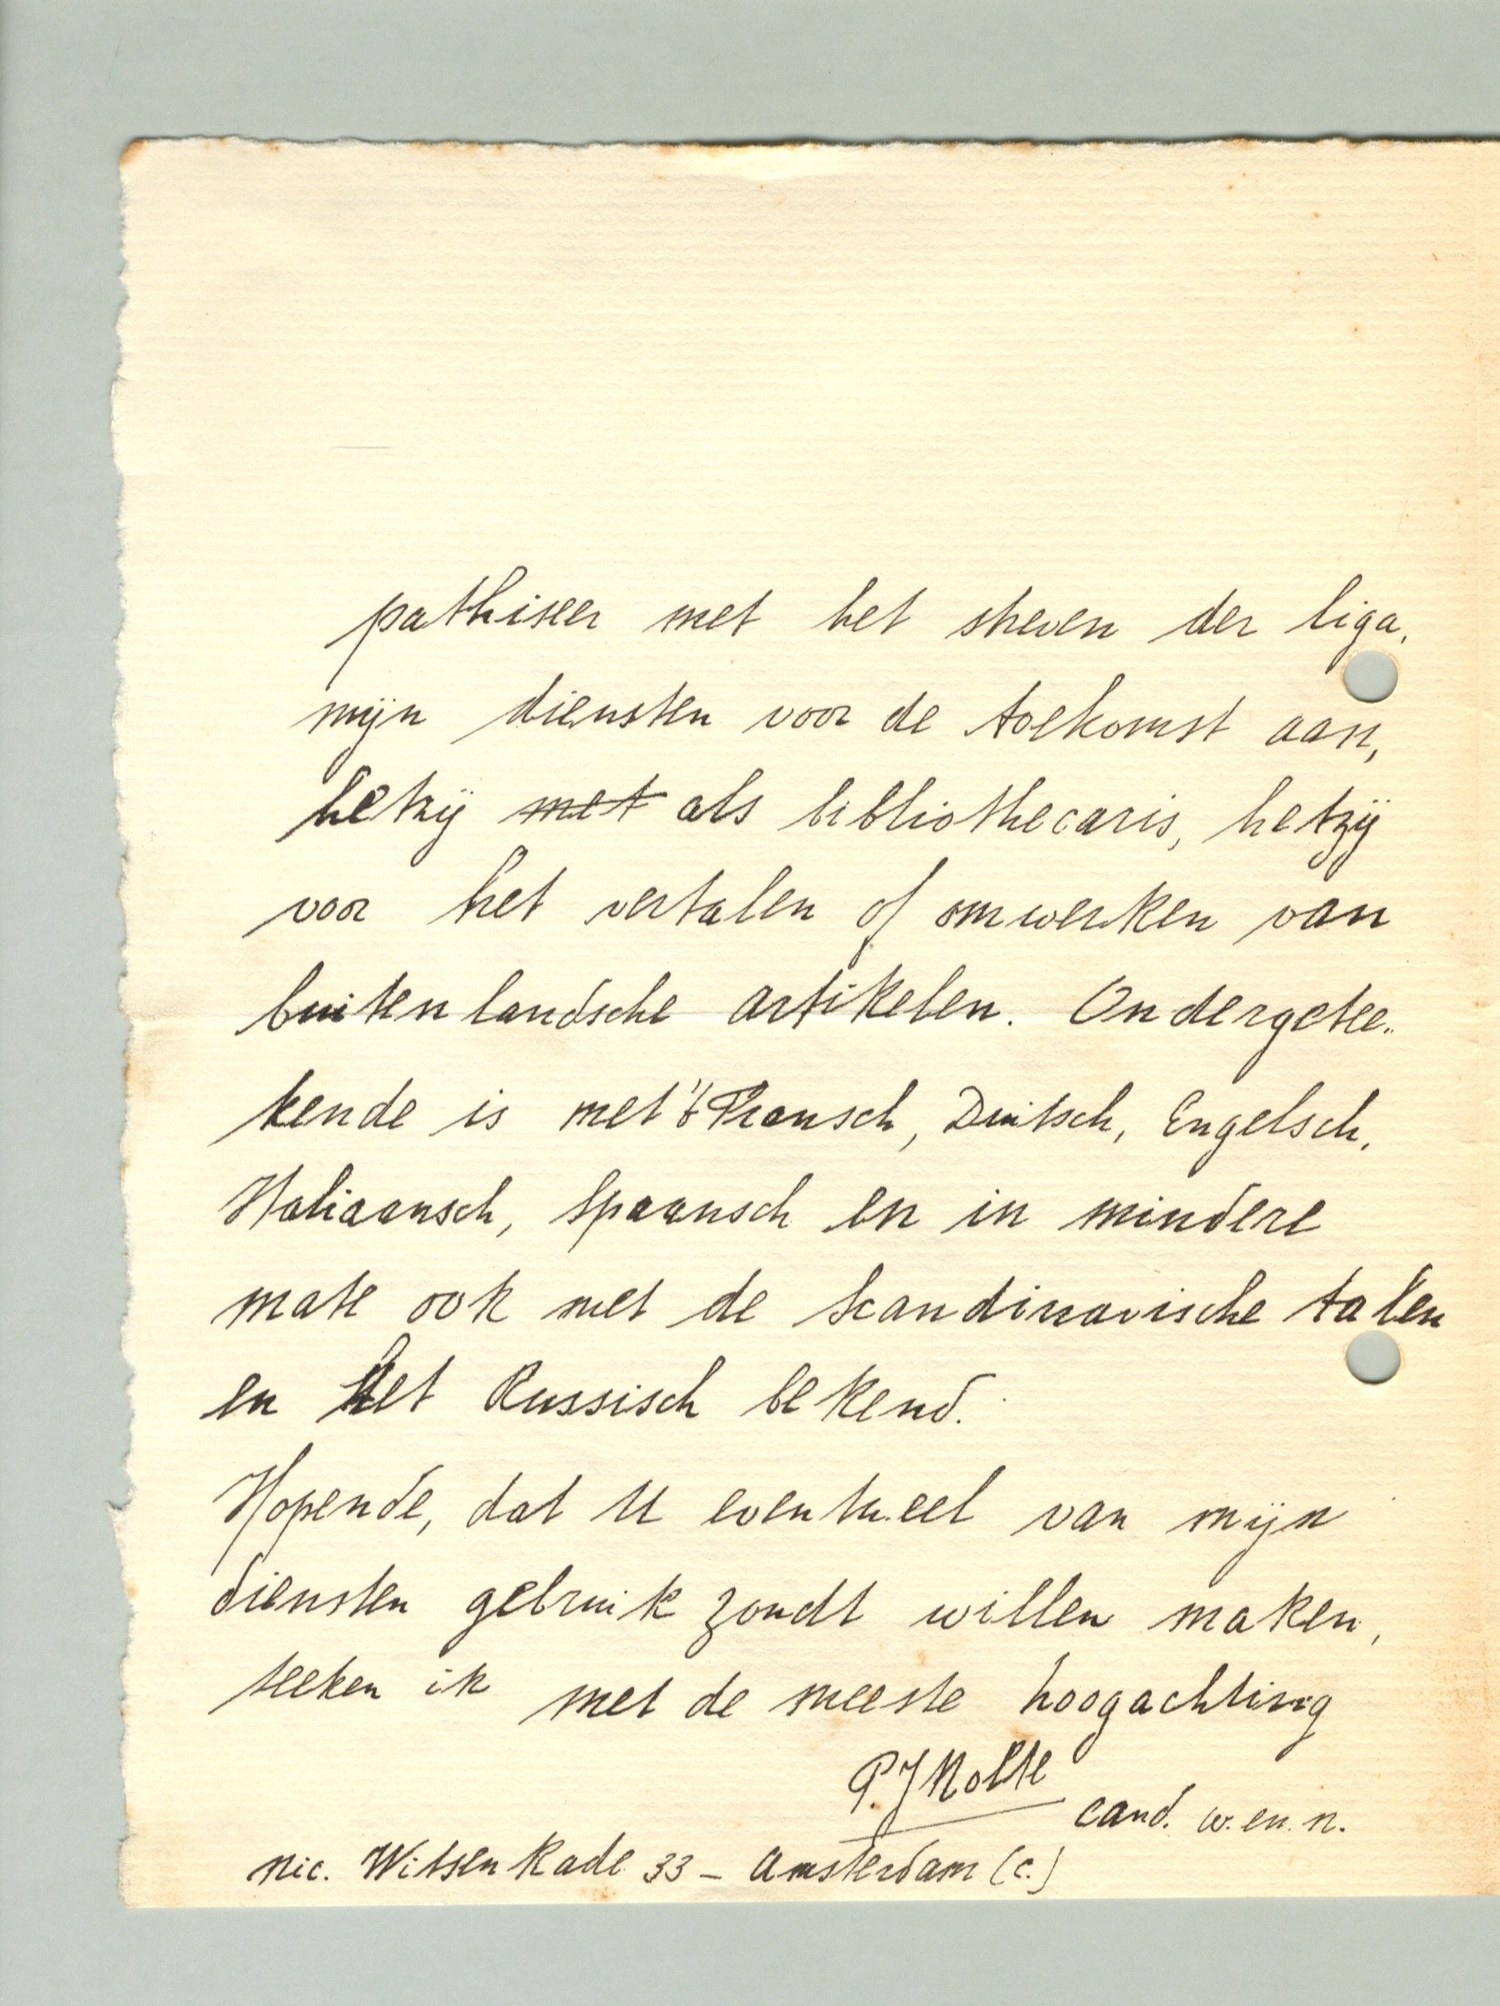 pathiseer met het streven der liga,
mijn diensten voor de toekomst aan,
hetzij met als bibliothecaris, hetzij
voor het vertalen of omwerken van
buitenlandsche artikelen. Ondergetee-
kende is met 't Fransch, Duitsch, Engelsch,
Italiaansch, Spaansch en in mindere
mate ook met de Scandinavische talen
en het Russisch bekend.
Hopende, dat U eventueel van mijn
diensten gebruik zoudt willen maken,
teeken ik met de meeste hoogachting
P.J Nolte
cand. w. en. n.
Nic. Witsen Kade 33 - Amsterdam (C.)